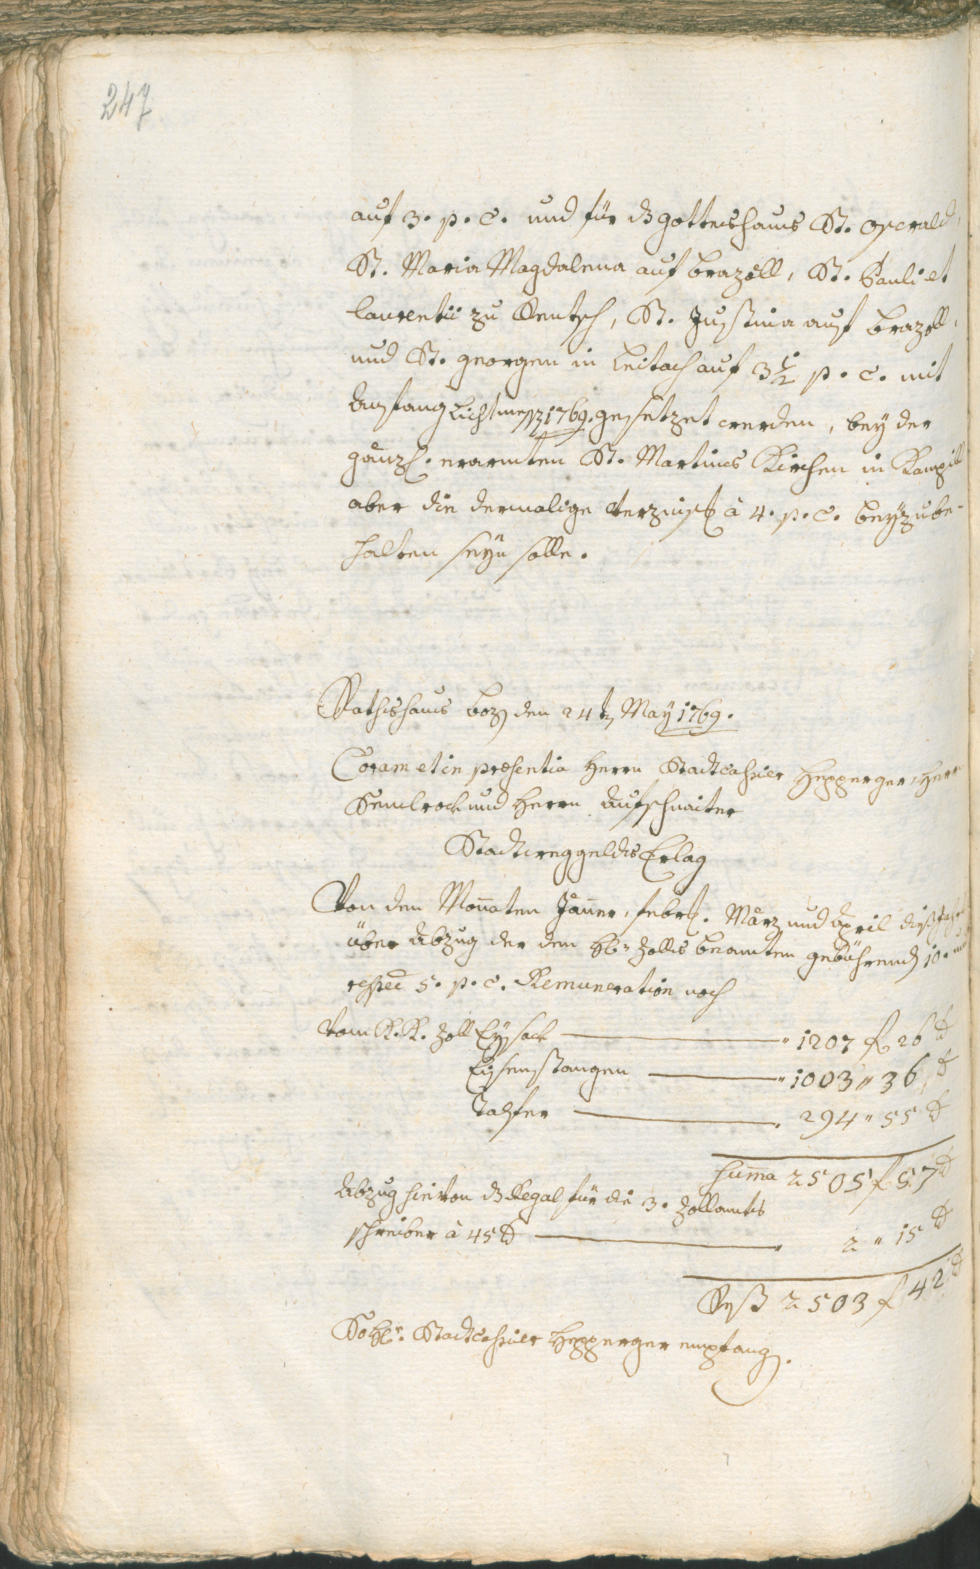 247
auf 3. p. C. und für dz gottershaus St. Oswald,
St. Maria Magdalena auf brazöll, St. Pauli et
laurentii zu Rentsch, St. Justina auf brazöll,
und St. georgen in Leitach auf 3½ p. C. mit
Anfang Lichtmess 1769. gesetzet werden, bey der
gänzl. erarmten St. Martins Kirchen in Kampill
aber die dermalige Verzinss à 4. p. C. beyzube-
halten seyn solle.
Rathshaus boz den 24t May 1769.
Coram et in præsentia Herrn Stadtcassier Hepperger, Herrn
und Herrn Aufschnaiter
Stadtweggelds Erlag
Von den Monaten Jäner, febr. März und April diss
über Abzug der den Zolls beamten gebührend 10.
respec 5. p. C. Remuneration noch
Vom K. K. Zoll Eysack — " 1207 f 26
Eysenstangen — " 1003 " 36
Talfer — " 294 " 55
Suma 2505 f 57
Abzug hievon dz Regal für die 3. Zollamts
schreiber à 45 — " 2 " 15
Rest 2503 f 42
So Stadtcassier Hepperger empfang.